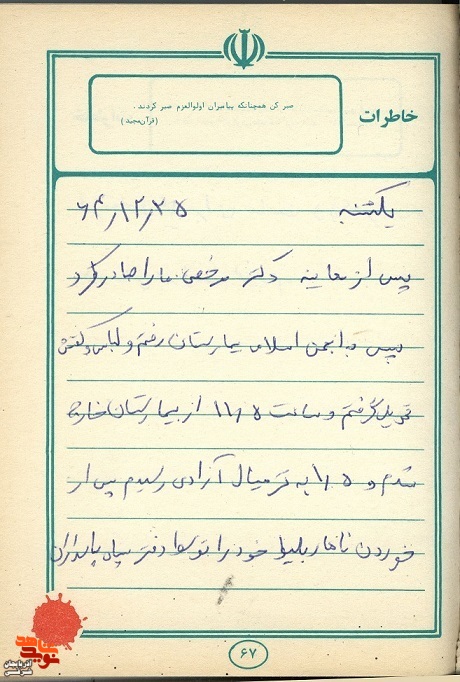 خاطرات
صبر کن همچنانکه پیامبران اولوالعزم صبر کردند.
(قرآن مجید)
یکشنبه ۶۴٫۱۲٫۲۵
پس از معاینه دکتر مرخصی ما را صادر کرد
سپس به انجمن اسلامی بیمارستان رفتم و لباس و کفش
تحویل گرفتم و ساعت ۱۱٫۵ از بیمارستان خارج
شدم و ۱٫۵ به ترمینال آزادی رسیدم پس از
خوردن ناهار بلیط خود را توسط دفتر سپاه پاسداران
۶۷
نوید شاهد
آذربایجان